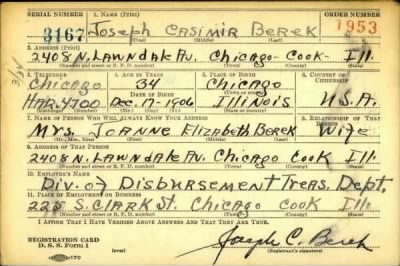 SERIAL NUMBER 1. NAME (Print) ORDER NUMBER
3167 JOSEPH CASIMIR BEREK 1953
(First) (Middle) (Last)
2. ADDRESS (Print)
2408 N. LAWNDALE AV. CHICAGO - COOK - ILL.
(Number and street or R. F. D. number) (Town) (County) (State)
3. TELEPHONE 4. AGE IN YEARS 5. PLACE OF BIRTH 6. COUNTRY OF CITIZENSHIP
Chicago 34 Chicago
DATE OF BIRTH
HAR. 4700 DEC. 17-1906 ILLINOIS U.S.A.
7. NAME OF PERSON WHO WILL ALWAYS KNOW YOUR ADDRESS 8. RELATIONSHIP OF THAT PERSON
MRS. JOANNE ELIZABETH BEREK WIFE
(Mr., Mrs., Miss) (First) (Middle) (Last)
9. ADDRESS OF THAT PERSON
2408 N. LAWNDALE AV. CHICAGO COOK ILL.
(Number and street or R. F. D. number) (Town) (County) (State)
10. EMPLOYER'S NAME
DIV. OF DISBURSEMENT TREAS. DEPT.
11. PLACE OF EMPLOYMENT OR BUSINESS
225 S. CLARK ST. CHICAGO COOK ILL
(Number and street or R. F. D. number) (Town) (County) (State)
I AFFIRM THAT I HAVE VERIFIED ABOVE ANSWERS AND THAT THEY ARE TRUE.
REGISTRATION CARD
D. S. S. Form 1 Joseph C. Berek